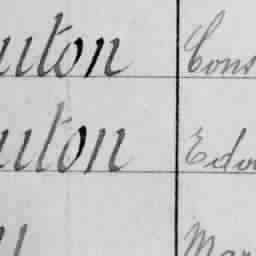 uton Cons
uton Edou
Mar